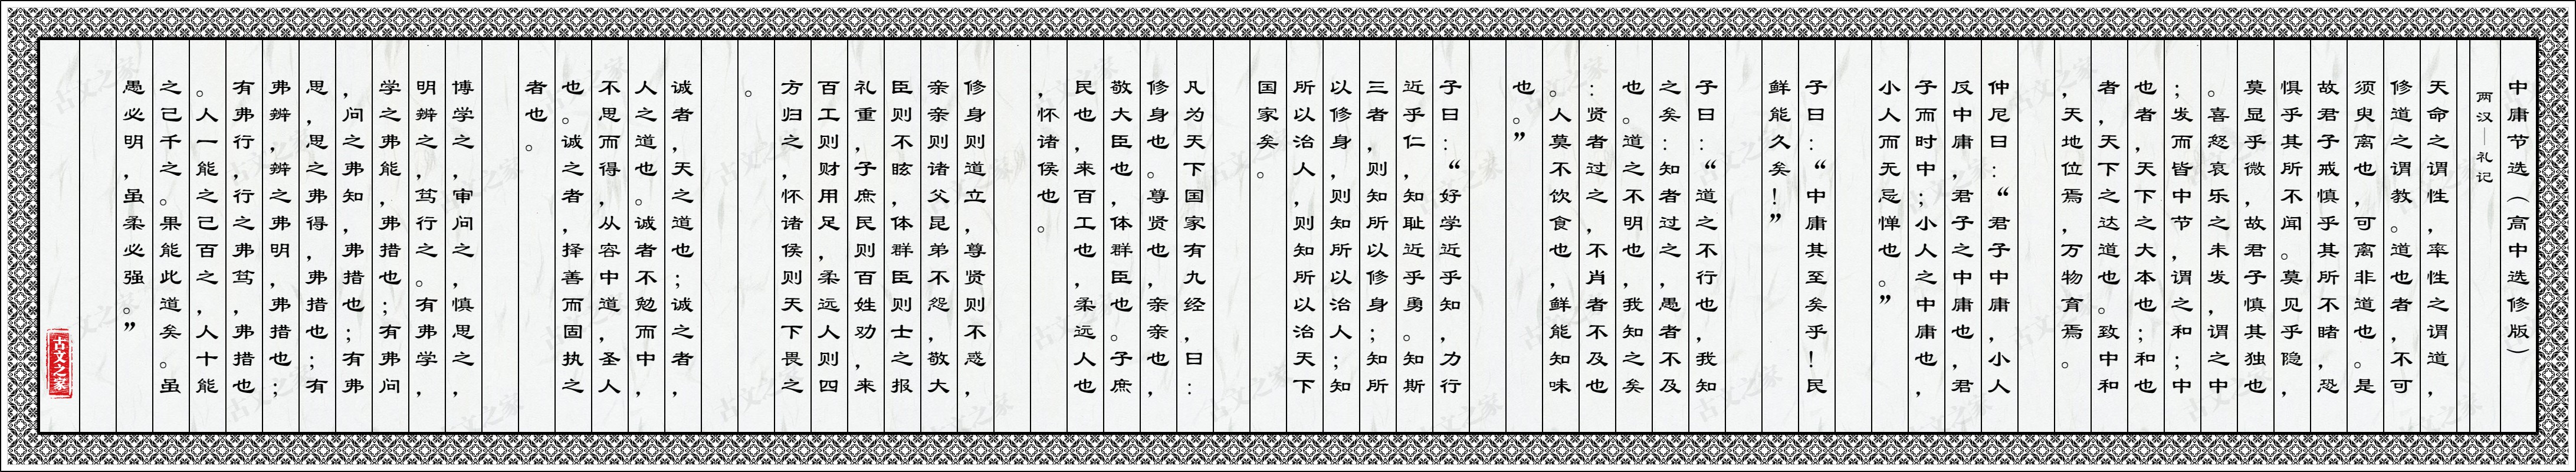 中庸节选（高中选修版）
两汉—礼记
天命之谓性，率性之谓道，
修道之谓教。道也者，不可
须臾离也，可离非道也。是
故君子戒慎乎其所不睹，恐
惧乎其所不闻。莫见乎隐，
莫显乎微，故君子慎其独也
。喜怒哀乐之未发，谓之中
；发而皆中节，谓之和；中
也者，天下之大本也；和也
者，天下之达道也。致中和
，天地位焉，万物育焉。
仲尼曰：“君子中庸，小人
反中庸，君子之中庸也，君
子而时中；小人之中庸也，
小人而无忌惮也。”
子曰：“中庸其至矣乎！民
鲜能久矣！”
子曰：“道之不行也，我知
之矣：知者过之，愚者不及
也。道之不明也，我知之矣
：贤者过之，不肖者不及也
。人莫不饮食也，鲜能知味
也。”
子曰：“好学近乎知，力行
近乎仁，知耻近乎勇。知斯
三者，则知所以修身；知所
以修身，则知所以治人；知
所以治人，则知所以治天下
国家矣。
凡为天下国家有九经，曰：
修身也。尊贤也，亲亲也，
敬大臣也，体群臣也。子庶
民也，来百工也，柔远人也
，怀诸侯也。
修身则道立，尊贤则不惑，
亲亲则诸父昆弟不怨，敬大
臣则不眩，体群臣则士之报
礼重，子庶民则百姓劝，来
百工则财用足，柔远人则四
方归之，怀诸侯则天下畏之
。
诚者，天之道也；诚之者，
人之道也。诚者不勉而中，
不思而得，从容中道，圣人
也。诚之者，择善而固执之
者也。
博学之，审问之，慎思之，
明辨之，笃行之。有弗学，
学之弗能，弗措也；有弗问
，问之弗知，弗措也；有弗
思，思之弗得，弗措也；有
弗辨，辨之弗明，弗措也；
有弗行，行之弗笃，弗措也
。人一能之己百之，人十能
之己千之。果能此道矣。虽
愚必明，虽柔必强。”
古文之家